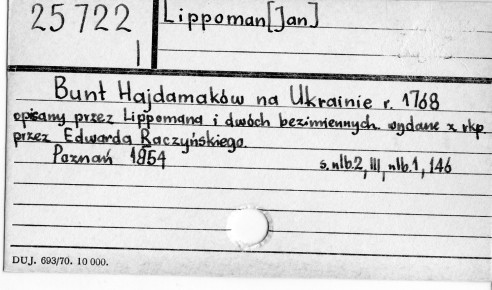 25722 Lippoman[Jan]
I
Bunt Hajdamaków na Ukrainie r. 1768
opisany przez Lippomana i dwóch bezimiennych. wydane z rkp.
przez Edwarda Raczyńskiego.
Poznań 1854 s. nlb. 2, III, nlb. 1, 146
DUJ. 693/70. 10 000.